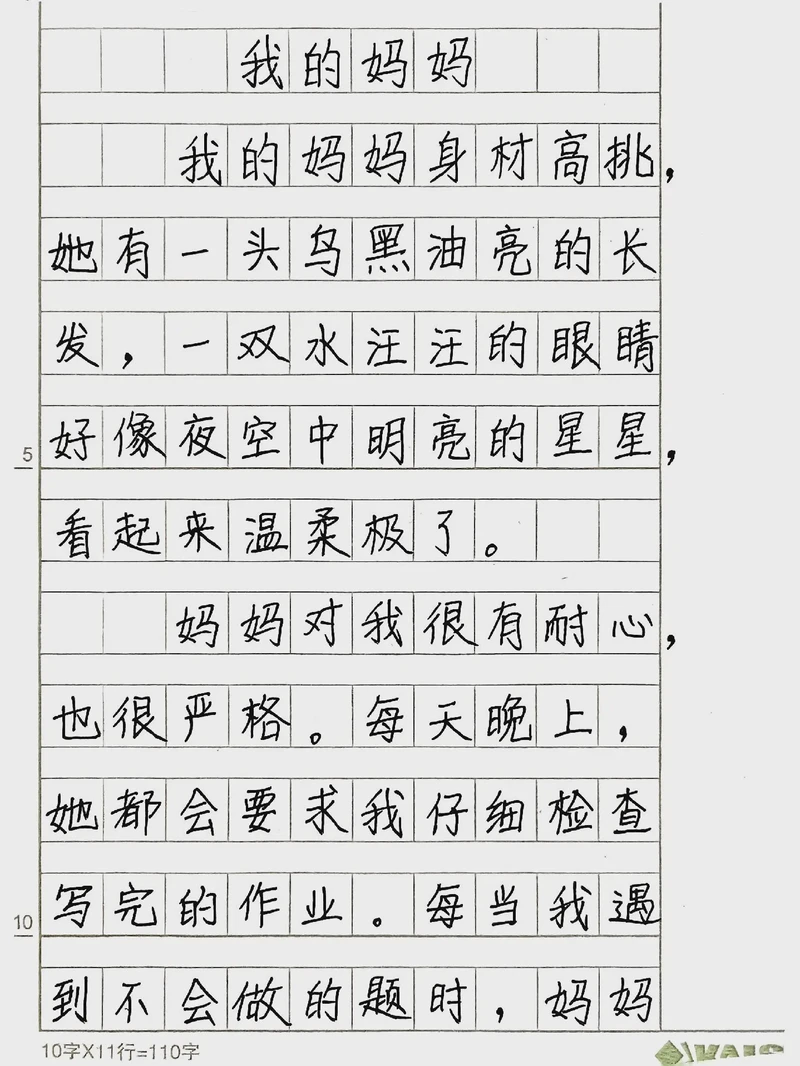 我的妈妈
我的妈妈身材高挑，
她有一头乌黑油亮的长
发，一双水汪汪的眼睛
好像夜空中明亮的星星，
5
看起来温柔极了。
妈妈对我很有耐心，
也很严格。每天晚上，
她都会要求我仔细检查
写完的作业。每当我遇
10
到不会做的题时，妈妈
10字X11行=110字